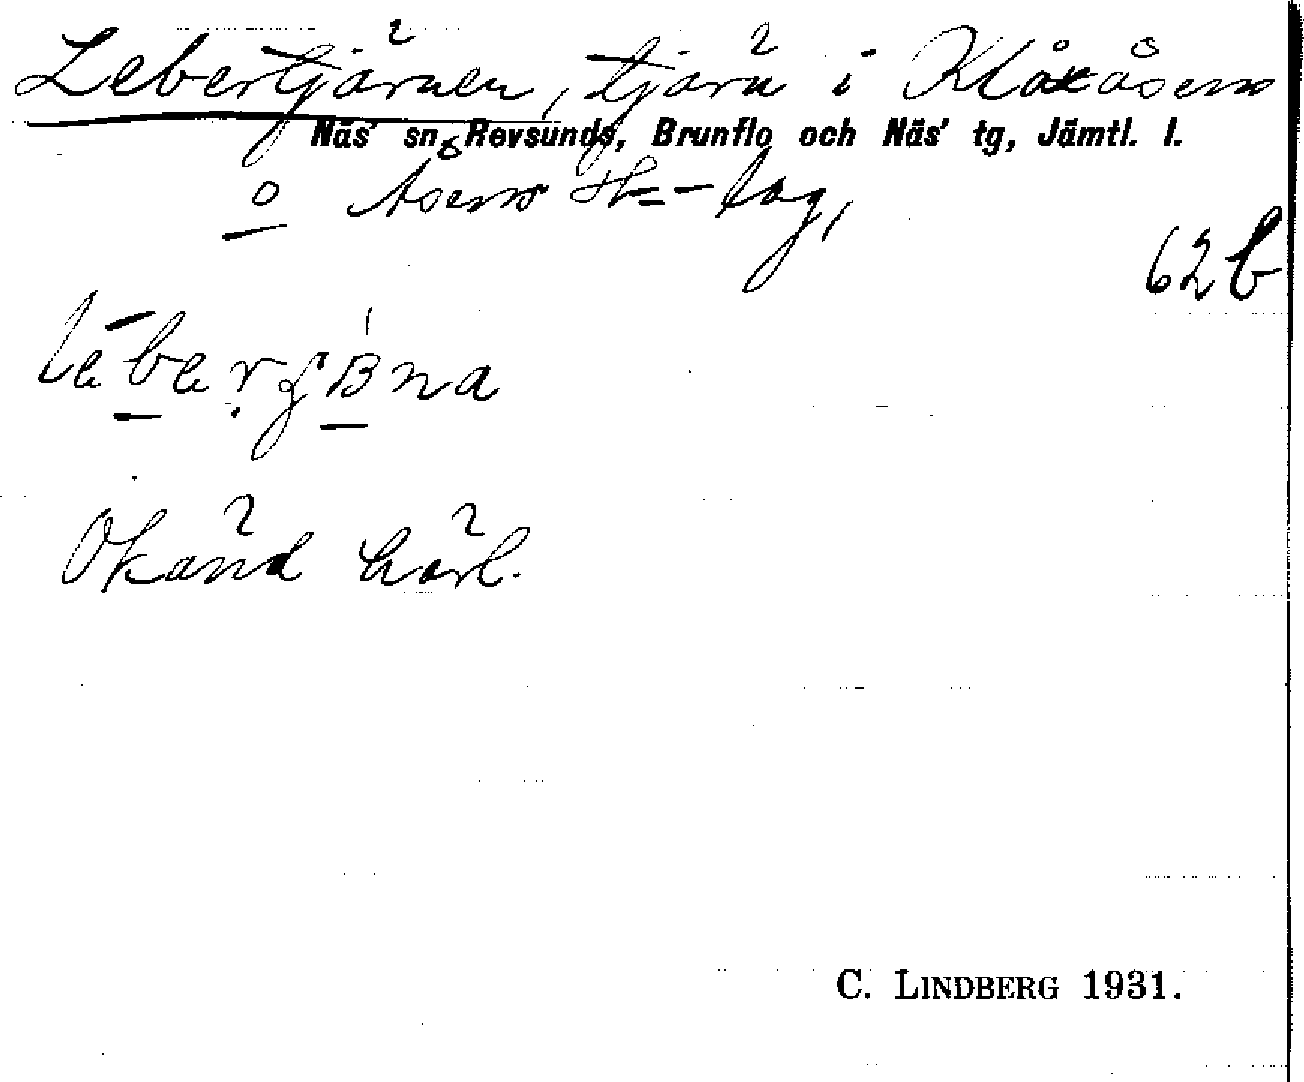 Lebertjärnen, tjärn i Klåxåsens
Näs' sn, Revsunds, Brunflo och Näs' tg, Jämtl. l.
o Åsens
62b
Okänd härl.
C. LINDBERG 1931.